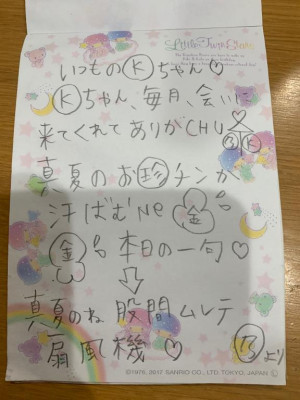 Little Twin Stars
いつものⓀちゃん♡
Ⓚちゃん、毎月、会いに
来てくれてありがCHU♡
③Ⓚ
真夏のお珍チンが
汗ばむNe 金
金 本日の一句♡
⇩
真夏のね 股間ムレテ
扇風機♡ ⑬より
©1976, 2017 SANRIO CO., LTD. TOKYO, JAPAN Ⓛ